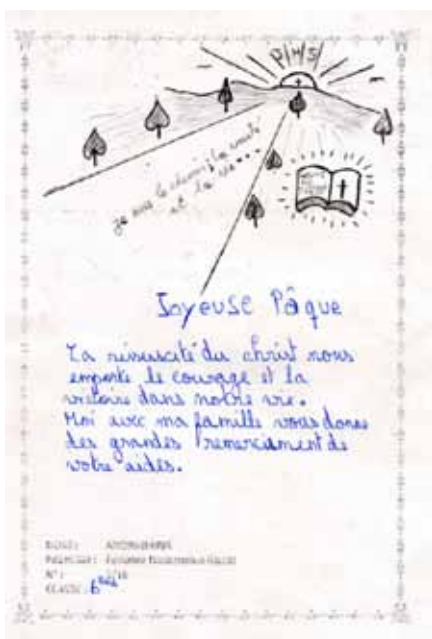 PHS
je suis le chemin, la vérité
et la vie...
Joyeuse Pâque
La réssuscité du christ nous
emporte le courage et la
victoire dans notre vie.
Moi avec ma famille vous donne
des grandes remerciement de
votre aides.
N° :
CLASSE: 6